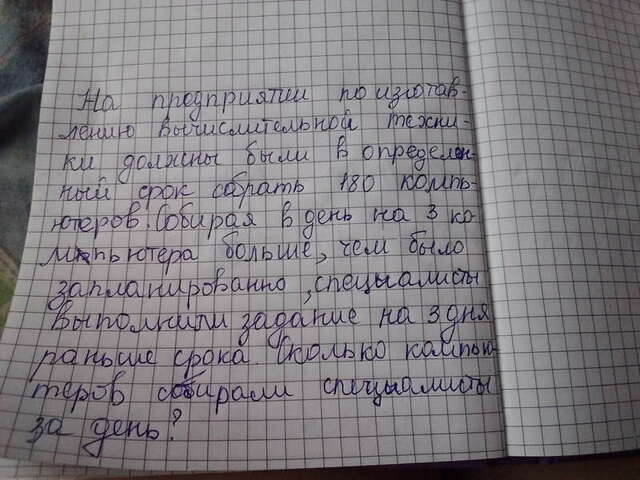 На предприятии по изготав-
лению вычислительной техни-
ки должны были в определен-
ный срок собрать 180 компь-
ютеров. Собирая в день на 3 ко-
мпьютера больше, чем было
запланированно, спецыалисты
выполнили задание на 3 дня
раньше срока. Сколько компью-
теров собирали спецыалисты
за день?